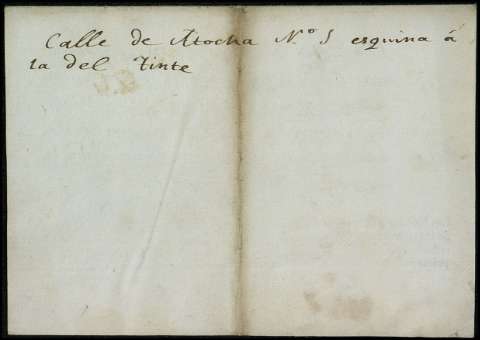 Calle de Atocha N.º 5 esquina á
la del Tinte